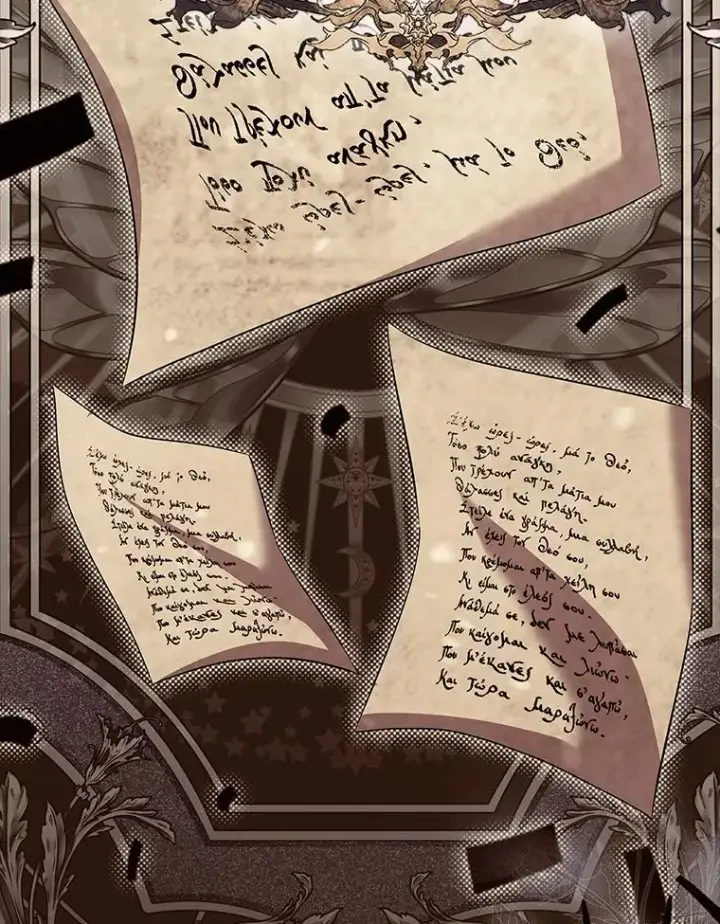 Θάλασσες καί
Που τρέχουν απ'τα μάτια μου
Τόσο πολύ ανάγκη,
Σ'έχω ώρες - ώρες, μά το Θεό,
Σ'έχω ώρες - ώρες, μά το Θεό,
Τόσο πολύ ανάγκη,
Που τρέχουν απ'τα μάτια μου
Θάλασσες καί πελάγη.
Στείλε ένα γράμμα, μια συλλαβή,
Αν έχεις τον Θεό σου,
Που κρέμομαι απ'τα χείλη σου
Κι είμαι στο έλεός σου.
Ανάθεμά σε, δεν με λυπάσαι
Που καίγομαι και λιώνω.
Που μ'έκανες και σ'αγαπώ,
Και τώρα μαραζώνω.
Σ'έχω ώρες - ώρες, μά το Θεό,
Τόσο πολύ ανάγκη,
Που τρέχουν απ'τα μάτια μου
Θάλασσες καί πελάγη.
Στείλε ένα γράμμα, μια συλλαβή,
Αν έχεις τον Θεό σου,
Που κρέμομαι απ'τα χείλη σου
Κι είμαι στο έλεός σου.
Ανάθεμά σε, δεν με λυπάσαι
Που καίγομαι και λιώνω.
Που μ'έκανες και σ'αγαπώ,
Και τώρα μαραζώνω.